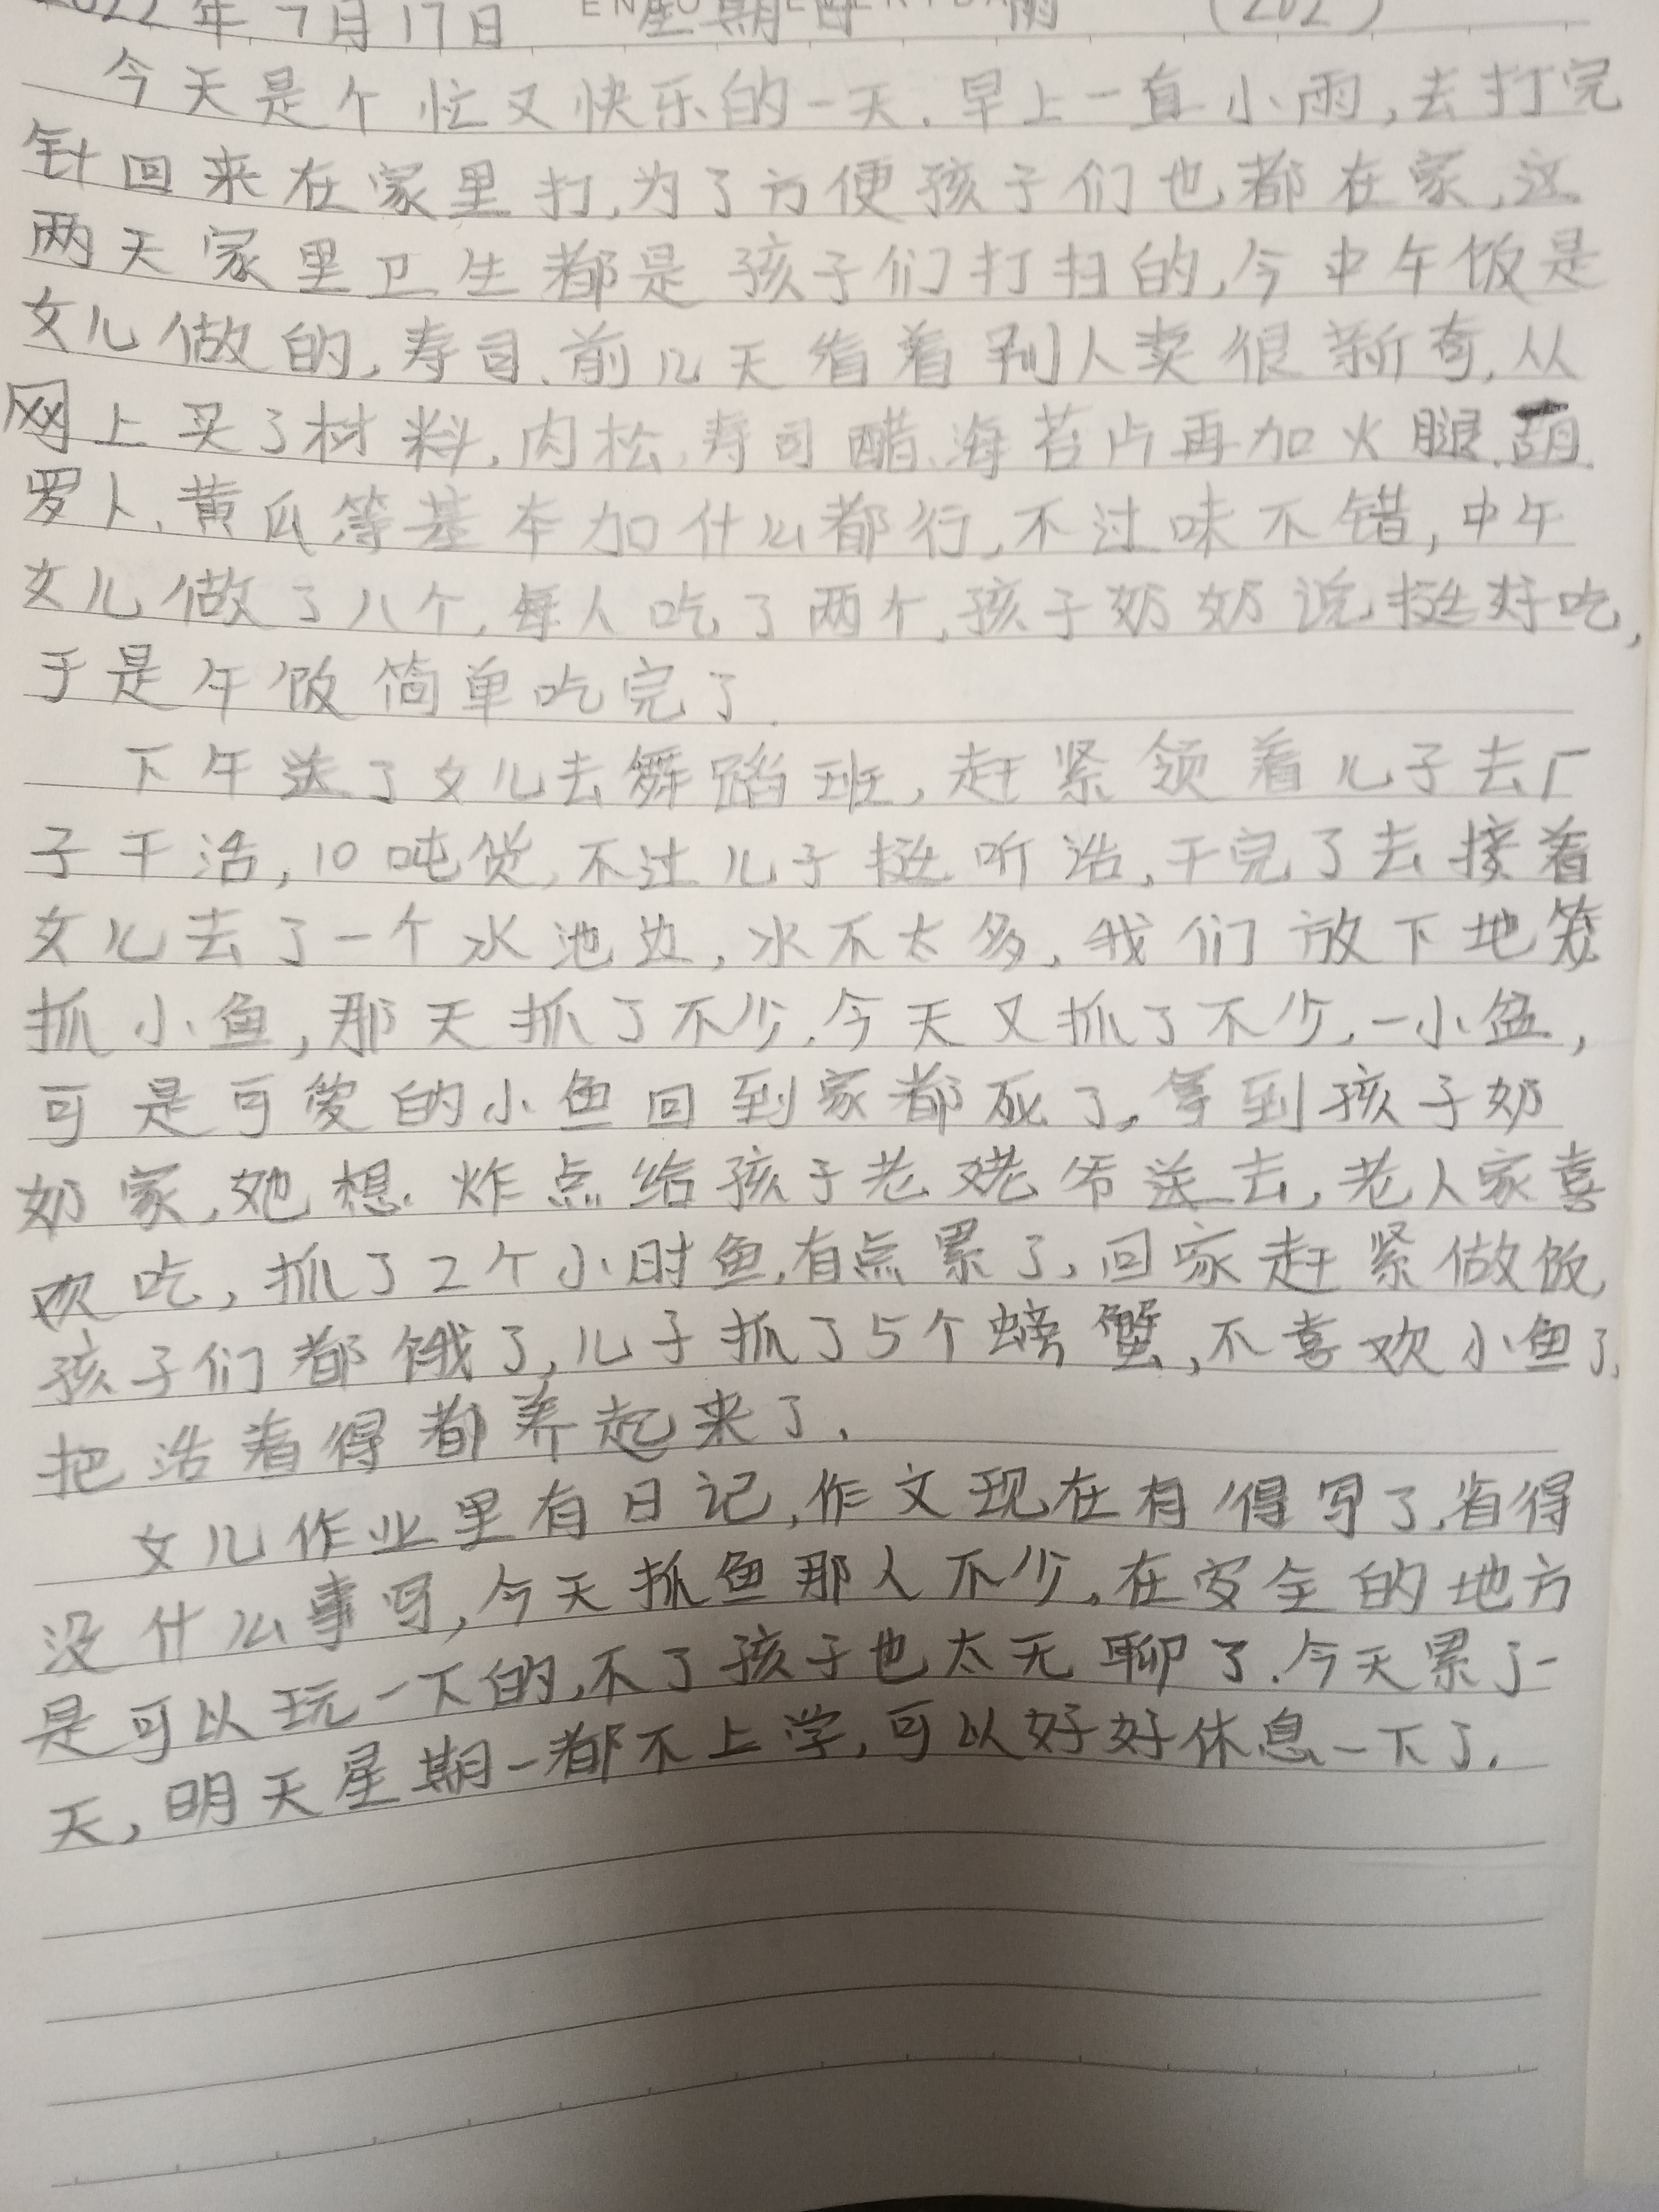 2022年7月17日 星期日 雨 (202)
今天是个忙又快乐的一天.早上一直小雨,去打完
针回来在家里打,为了方便孩子们也都在家,这
两天家里卫生都是孩子们打扫的,今中午饭是
女儿做的,寿司.前几天看着别人卖很新奇,从
网上买了材料,肉松,寿司醋、海苔片再加火腿.葫
罗卜、黄瓜等基本加什么都行,不过味不错,中午
女儿做了八个,每人吃了两个,孩子奶奶说挺好吃,
于是午饭简单吃完了.
下午送了女儿去舞蹈班,赶紧领着儿子去厂
子干活,10吨货,不过儿子挺听话,干完了去接着
女儿去了一个水池边,水不太多,我们放下地笼
抓小鱼,那天抓了不少.今天又抓了不少,一小盆,
可是可爱的小鱼回到家都死了,拿到孩子奶
奶家,她想.炸点给孩子老姥爷送去,老人家喜
欢吃,抓了2个小时鱼,有点累了,回家赶紧做饭,
孩子们都饿了,儿子抓了5个螃蟹,不喜欢小鱼了,
把活着得都养起来了.
女儿作业里有日记,作文现在有得写了,省得
没什么事写,今天抓鱼那人不少,在安全的地方
是可以玩一下的,不了孩子也太无聊了.今天累了一
天,明天星期一都不上学,可以好好休息一下了.